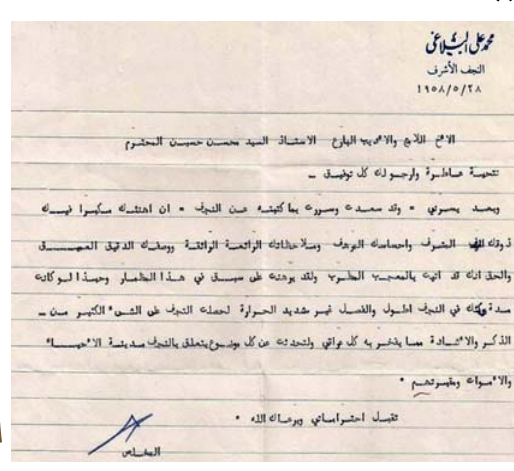 محمد علي البلاغي
النجف الأشرف
١٩٥٨/٥/٢٨
الاخ اللامع والاديب البارع الاستاذ السيد محسن حسين المحترم
تحية عاطرة وارجو لك كل توفيق –
وبعد يسرني • وقد سعدت وسررت بما كتبته عن النجف • ان اهنئك مكبرا فيك
ذوقك المترف واحساسك المرهف وملاحظاتك الرائعة الرائقة ووصفك الدقيق العميق
والحق انك قد اتيت بالمعجب المطرب ولقد برهنت على سبق في هذا المظمار وحبذا لو كانت
مدة مكثك في النجف اطول والفصل غير شديد الحرارة لحصلت النجف على الشيء الكثير من –
الذكر والاشادة مما يفخر به كل عراقي ولتحدثت عن كل موضوع يتعلق بالنجف مدينة الاحياء
والاموات ومقبرتهم •
تقبل احتراماتي ويرعاك الله •
المخلص